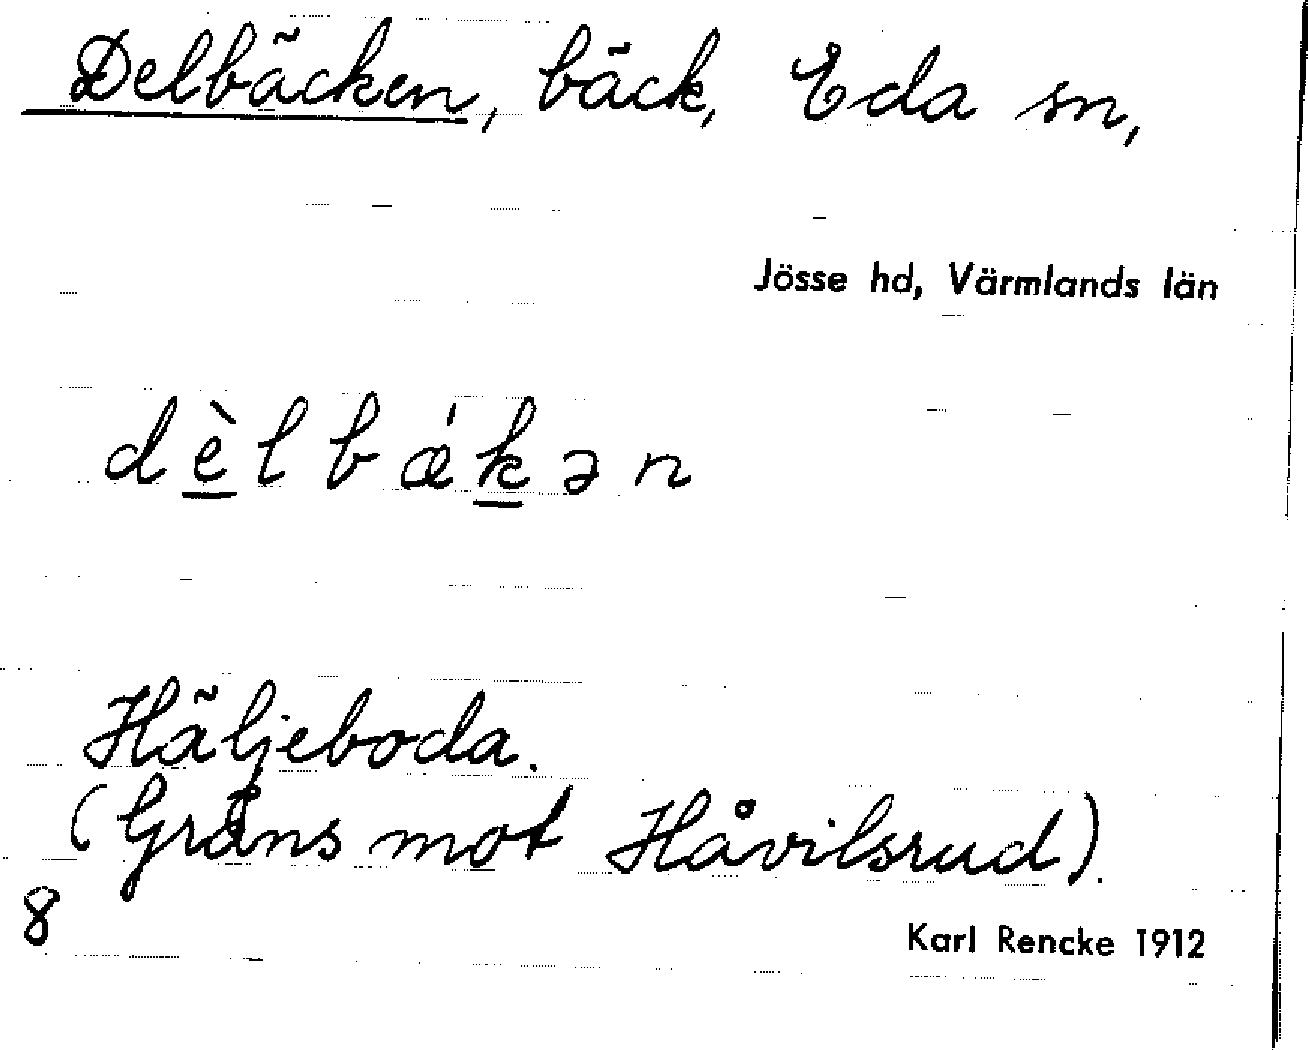 Delbäcken, bäck, Eda sn,
Jösse hd, Värmlands län
dèlbǽkən
Häljeboda.
(Gräns mot Håvilsrud).
8
Karl Rencke 1912